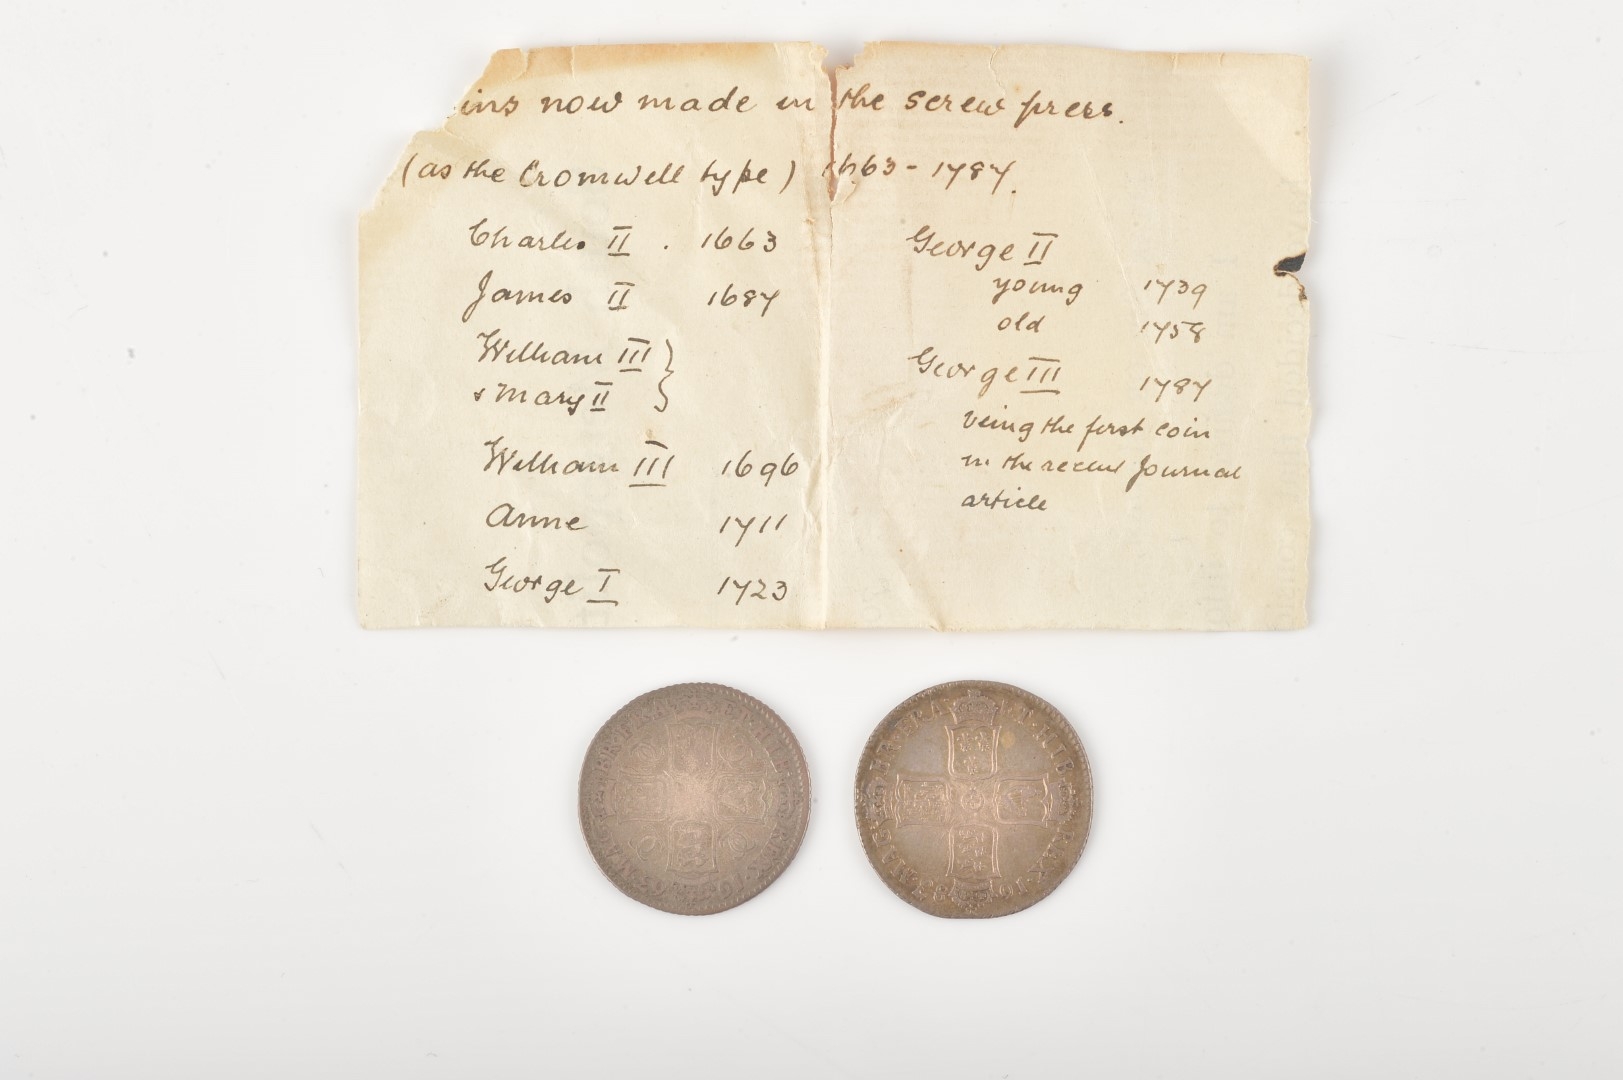 ins now made in the screw press.
(as the Cromwell type) 1663 - 1787.
Charles II . 1663
James II 1687
William III }
& Mary II }
William III 1696
Anne 1711
George I 1723
George II
young 1739
old 1758
George III 1787
being the first coin
in the recent Journal
article